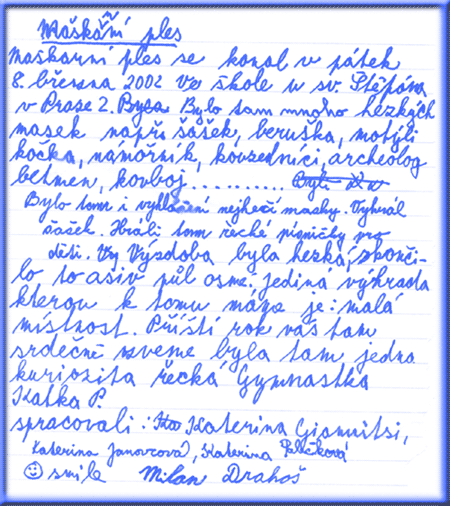 Maškařní ples
Maškarní ples se konal v pátek
8. března 2002 ve škole u sv. Štěpána
v Praze 2. Bylo tam mnoho hezkých
masek např: šašek, beruška, motýli
kočka, námořník, kouzedníci, archeolog
betmen, kovboj..........
Bylo tam i vyhlášení nejhezčí masky. Vyhrál
šašek. Hráli tam řecké písničky pro
děti. Výzdoba byla hezká, skonči-
lo to asi v půl osmé. jediná výhrada
kterou k tomu máme je: malá
místnost. Příští rok vás tam
srdečně zveme byla tam jedna
kuriozita řecká Gymnastka
Katka P.
spracovali: Katerina Giannitsi,
Katerina Janovcová, Katerina
smile Milan Drahoš